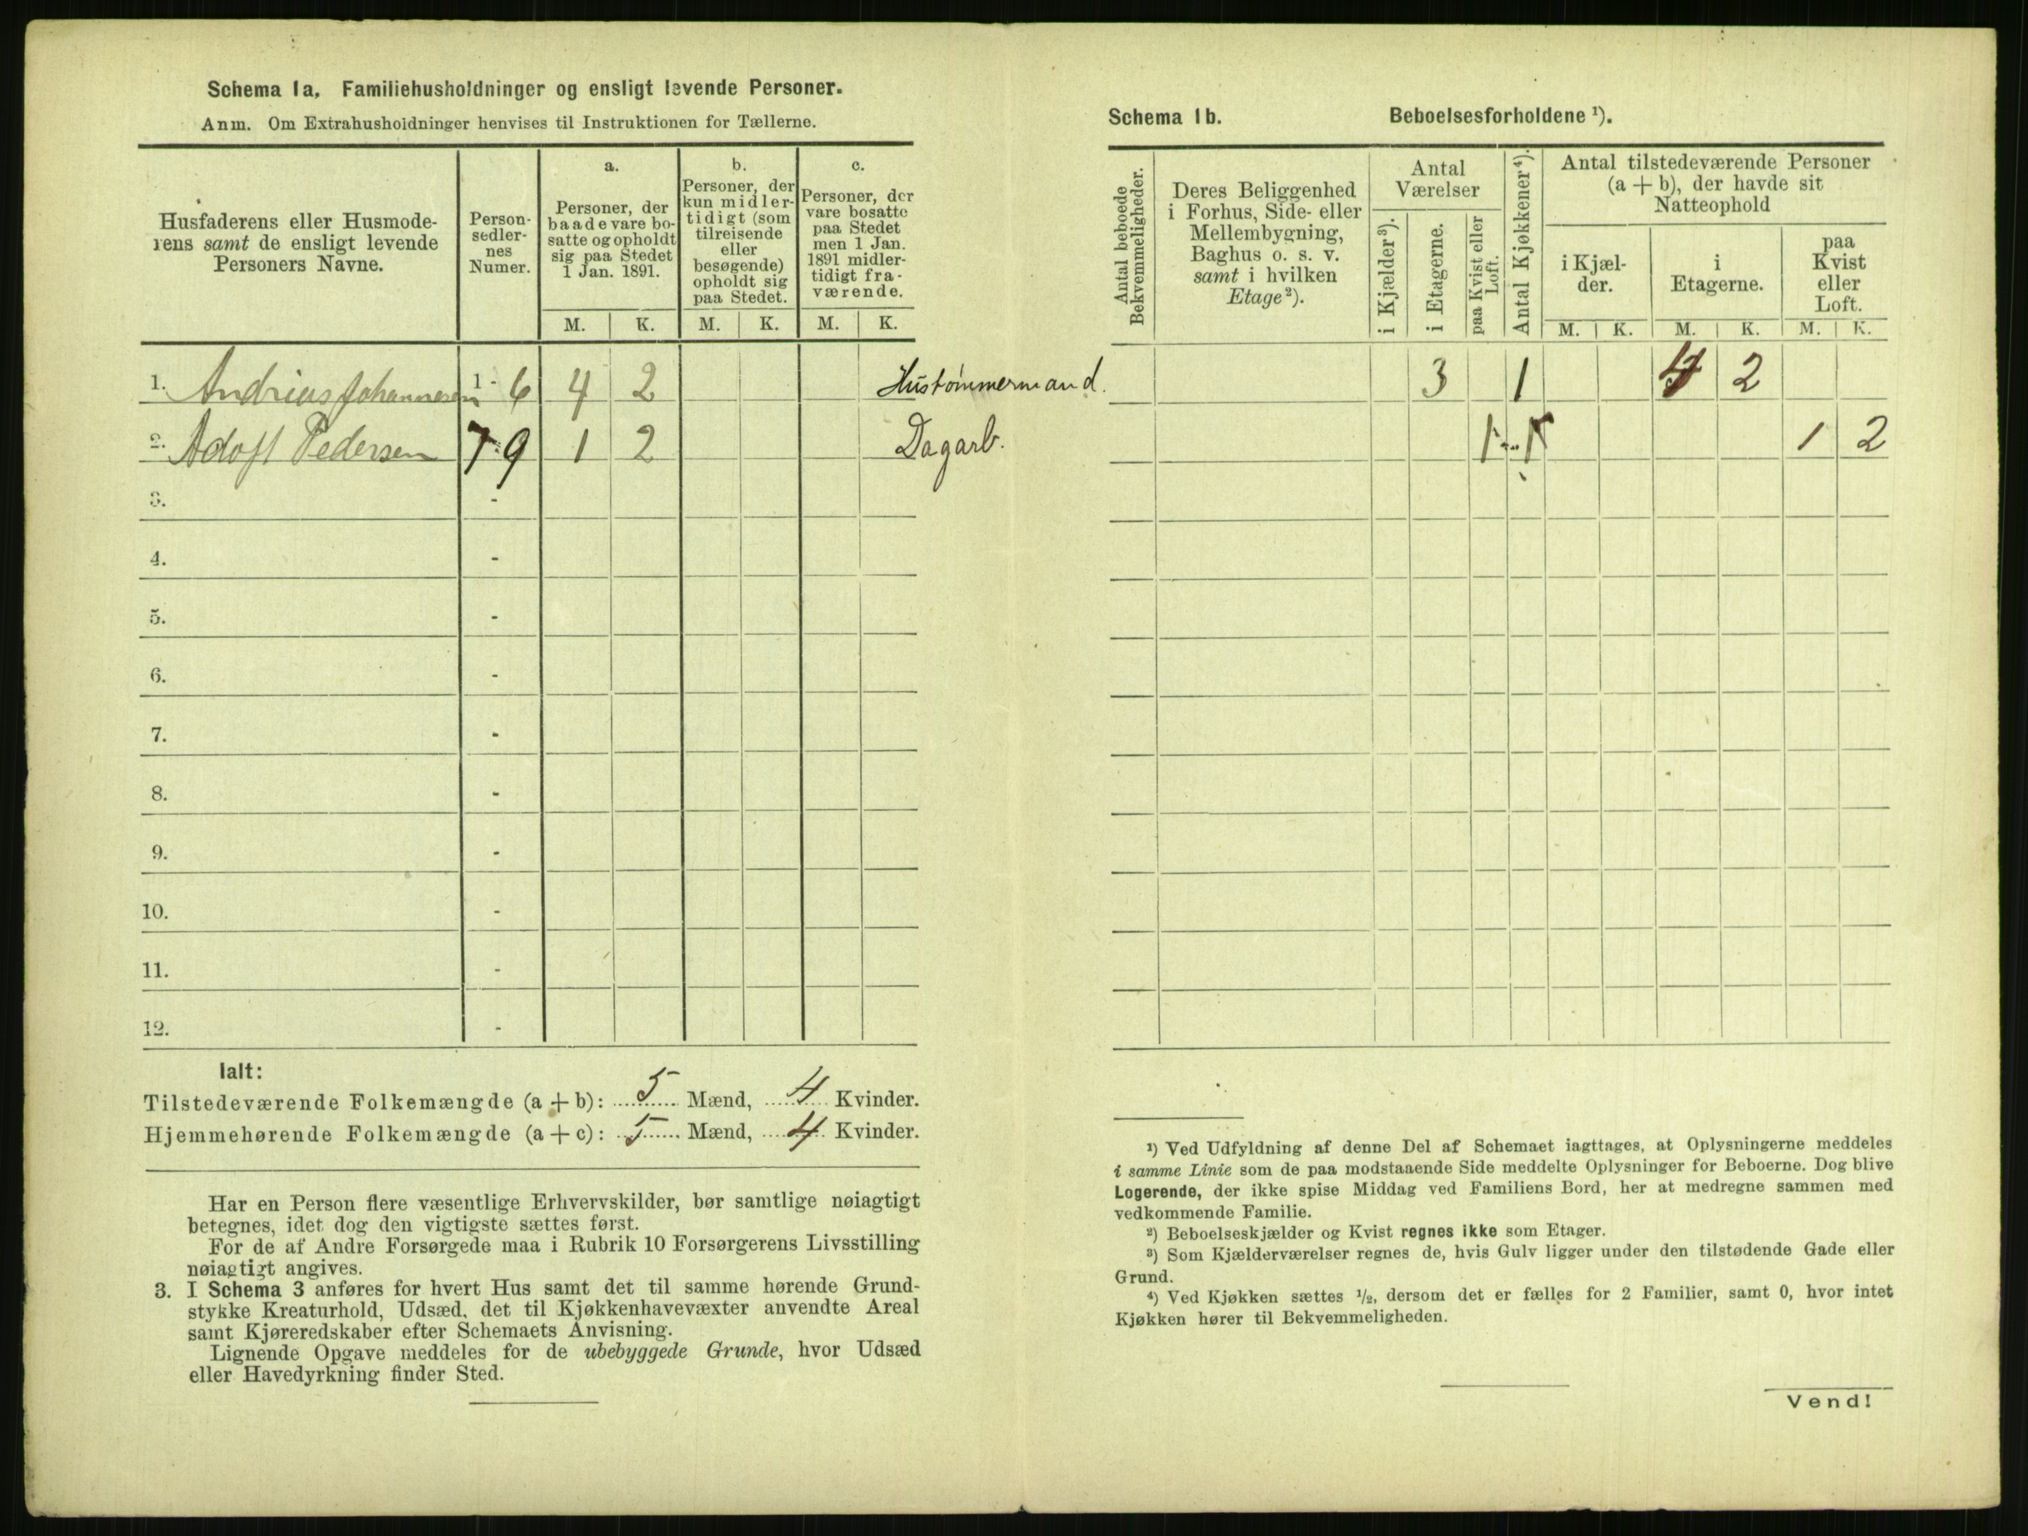 Schema 1a. Familiehusholdninger og ensligt levende Personer.
Anm. Om Extrahusholdninger henvises til Instruktionen for Tællerne.
Husfaderens eller Husmode-
rens samt de ensligt levende
Personers Navne.
Person-
sedler-
nes
Numer.
a.
Personer, der
baade vare bo-
satte og opholdt
sig paa Stedet
1 Jan. 1891.
b.
Personer, der
kun midler-
tidigt (som
tilreisende
eller
besøgende)
opholdt sig
paa Stedet.
c.
Personer, der
vare bosatte
paa Stedet
men 1 Jan.
1891 midler-
tidigt fra-
værende.
M. K. M. K. M. K.
1. Andrias Johannesen 1 - 6 4 2 Hustømmermand.
2. Adolf Pedersen 7 - 9 1 2 Dagarb.
3. -
4. -
5. -
6. -
7. -
8. -
9. -
10. -
11. -
12. -
Ialt:
Tilstedeværende Folkemængde (a + b): 5 Mænd, 4 Kvinder.
Hjemmehørende Folkemængde (a + c): 5 Mænd, 4 Kvinder.
Har en Person flere væsentlige Erhvervskilder, bør samtlige nøiagtigt
betegnes, idet dog den vigtigste sættes først.
For de af Andre Forsørgede maa i Rubrik 10 Forsørgerens Livsstilling
nøiagtigt angives.
3. I Schema 3 anføres for hvert Hus samt det til samme hørende Grund-
stykke Kreaturhold, Udsæd, det til Kjøkkenhavevæxter anvendte Areal
samt Kjøreredskaber efter Schemaets Anvisning.
Lignende Opgave meddeles for de ubebyggede Grunde, hvor Udsæd
eller Havedyrkning finder Sted.
Schema 1b. Beboelsesforholdene ¹).
Antal beboede
Bekvemmeligheder.
Deres Beliggenhed
i Forhus, Side- eller
Mellembygning,
Baghus o. s. v.
samt i hvilken
Etage ²).
Antal
Værelser
i Kjælder ³).
i Etagerne.
paa Kvist eller
Loft.
Antal Kjøkkener ⁴).
Antal tilstedeværende Personer
(a + b), der havde sit
Natteophold
i Kjæl-
der.
i
Etagerne.
paa
Kvist
eller
Loft.
M. K. M. K. M. K.
3 1 4 2
1 - 1 1 2
¹) Ved Udfyldning af denne Del af Schemaet iagttages, at Oplysningerne meddeles
i samme Linie som de paa modstaaende Side meddelte Oplysninger for Beboerne. Dog blive
Logerende, der ikke spise Middag ved Familiens Bord, her at medregne sammen med
vedkommende Familie.
²) Beboelseskjælder og Kvist regnes ikke som Etager.
³) Som Kjælderværelser regnes de, hvis Gulv ligger under den tilstødende Gade eller
Grund.
⁴) Ved Kjøkken sættes ¹/₂, dersom det er fælles for 2 Familier, samt 0, hvor intet
Kjøkken hører til Bekvemmeligheden.
Vend!